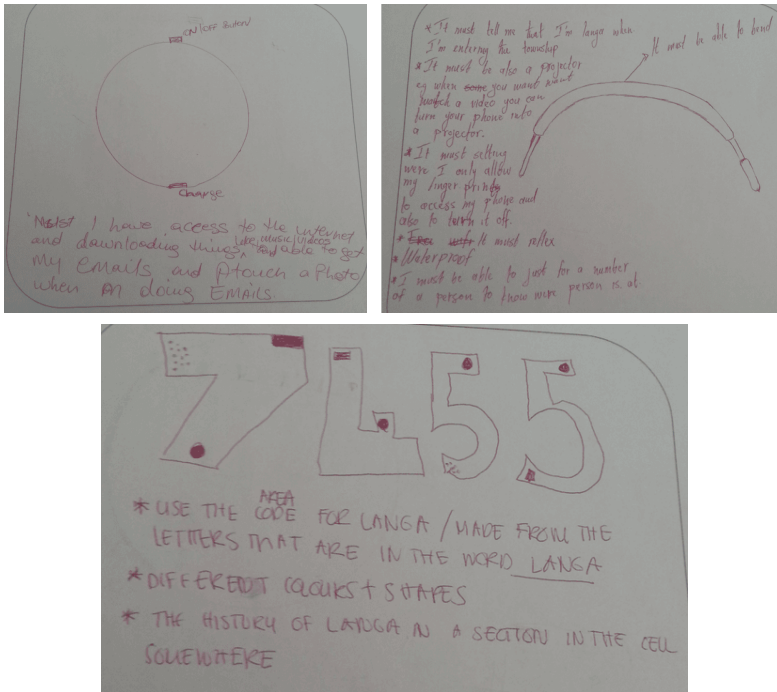 ON/OFF Button
Charge
Must I have access to the Internet
and downloading things, like, music/videos
and able to get
my emails and Attouch a Photo
when Am doing EMAILS.
*It must tell me that I'm langa when
I'm entering the township
*It must be also a projector
eg when some you want want
watch a video you can
turn your phone into
a projector.
*It must setting
were I only allow
my finger prints
to access my phone and
also to turn it off.
* It must reflex
*Waterproof
*I must be able to just for a number
of a person to know were person is at
It must be able to bend
7455
*USE THE AREA CODE FOR LANGA / MADE FROM THE
LETTERS THAT ARE IN THE WORD LANGA
*DIFFERENT COLOURS + SHAPES
* THE HISTORY OF LANGA IN A SECTION IN THE CELL
SOMEWHERE